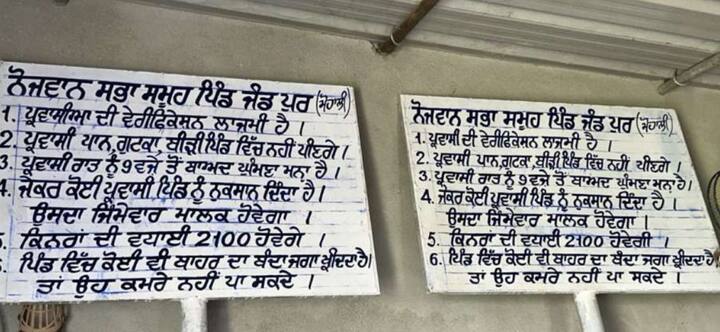 ਨੌਜਵਾਨ ਸਭਾ ਸਮੂਹ ਪਿੰਡ ਜੰਡ ਪੁਰ (ਮੋਹਾਲੀ)
1. ਪ੍ਰਵਾਸੀਆ ਦੀ ਵੇਰੀਫਿਕੇਸਨ ਲਾਜ਼ਮੀ ਹੈ ।
2. ਪ੍ਰਵਾਸੀ ਪਾਨ, ਗੁਟਕਾ, ਬੀੜੀ ਪਿੰਡ ਵਿੱਚ ਨਹੀਂ ਪੀਣਗੇ ।
3. ਪ੍ਰਵਾਸੀ ਰਾਤ ਨੂੰ 9 ਵਜੇ ਤੋਂ ਬਾਅਦ ਘੁੰਮਣਾ ਮਨਾ ਹੈ ।
4. ਜੇਕਰ ਕੋਈ ਪ੍ਰਵਾਸੀ ਪਿੰਡ ਨੂੰ ਨੁਕਸਾਨ ਦਿੰਦਾ ਹੈ ।
ਉਸਦਾ ਜਿੰਮੇਵਾਰ ਮਾਲਕ ਹੋਵੇਗਾ ।
5. ਕਿਨਰਾਂ ਦੀ ਵਧਾਈ 2100 ਹੋਵੇਗੇ ।
ਪਿੰਡ ਵਿੱਚ ਕੋਈ ਵੀ ਬਾਹਰ ਦਾ ਬੰਦਾ ਜਗਾ ਖ੍ਰੀਦਦਾ ਹੈ।
ਤਾਂ ਉਹ ਕਮਰੇ ਨਹੀਂ ਪਾ ਸਕਦੇ ।
ਨੌਜਵਾਨ ਸਭਾ ਸਮੂਹ ਪਿੰਡ ਜੰਡ ਪੁਰ (ਮੋਹਾਲੀ)
1. ਪ੍ਰਵਾਸੀ ਦੀ ਵੇਰੀਫਿਕੇਸਨ ਲਾਜਮੀ ਹੈ ।
2. ਪ੍ਰਵਾਸੀ ਪਾਨ, ਗੁਟਕਾ, ਬੀੜੀ ਪਿੰਡ ਵਿੱਚ ਨਹੀਂ ਪੀਣਗੇ ।
3. ਪ੍ਰਵਾਸੀ ਰਾਤ ਨੂੰ 9 ਵਜੇ ਤੋਂ ਬਾਅਦ ਘੁੰਮਣਾ ਮਨਾ ਹੈ।
4. ਜੇਕਰ ਕੋਈ ਪ੍ਰਵਾਸੀ ਪਿੰਡ ਨੂੰ ਨੁਕਸਾਨ ਦਿੰਦਾ ਹੈ ।
ਉਸਦਾ ਜਿੰਮੇਵਾਰ ਮਾਲਕ ਹੋਵੇਗਾ ।
5. ਕਿਨਰਾਂ ਦੀ ਵਧਾਈ 2100 ਹੋਵੇਗੀ ।
6. ਪਿੰਡ ਵਿੱਚ ਕੋਈ ਵੀ ਬਾਹਰ ਦਾ ਬੰਦਾ ਜਗਾ ਖ੍ਰੀਦਦਾ ਹੈ
ਤਾਂ ਉਹ ਕਮਰੇ ਨਹੀਂ ਪਾ ਸਕਦੇ ।